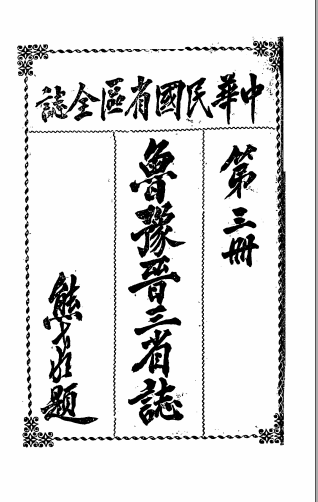 中華民國省區全誌
第三冊
魯豫晉三省誌
熊希齡題